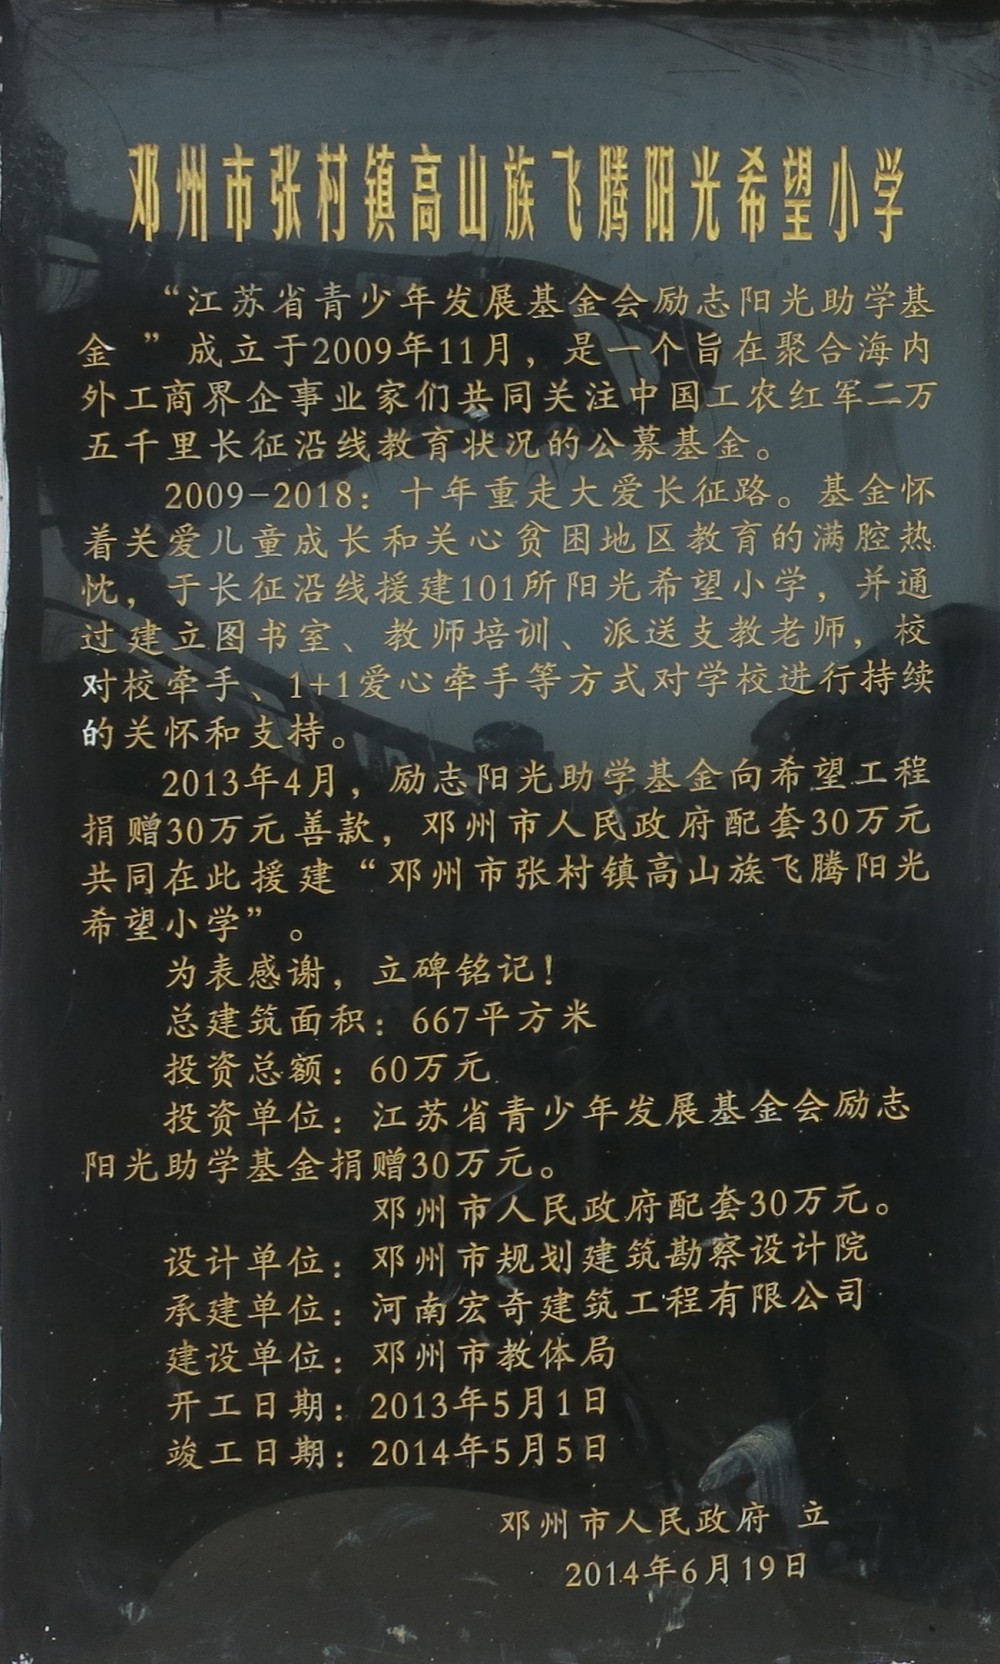 邓州市张村镇高山族飞腾阳光希望小学
“江苏省青少年发展基金会励志阳光助学基
金”成立于2009年11月，是一个旨在聚合海内
外工商界企事业家们共同关注中国工农红军二万
五千里长征沿线教育状况的公募基金。
2009-2018：十年重走大爱长征路。基金怀
着关爱儿童成长和关心贫困地区教育的满腔热
忱，于长征沿线援建101所阳光希望小学，并通
过建立图书室、教师培训、派送支教老师，校
对校牵手、1+1爱心牵手等方式对学校进行持续
的关怀和支持。
2013年4月，励志阳光助学基金向希望工程
捐赠30万元善款，邓州市人民政府配套30万元
共同在此援建“邓州市张村镇高山族飞腾阳光
希望小学”。
为表感谢，立碑铭记！
总建筑面积：667平方米
投资总额：60万元
投资单位：江苏省青少年发展基金会励志
阳光助学基金捐赠30万元。
邓州市人民政府配套30万元。
设计单位：邓州市规划建筑勘察设计院
承建单位：河南宏奇建筑工程有限公司
建设单位：邓州市教体局
开工日期：2013年5月1日
竣工日期：2014年5月5日
邓州市人民政府 立
2014年6月19日